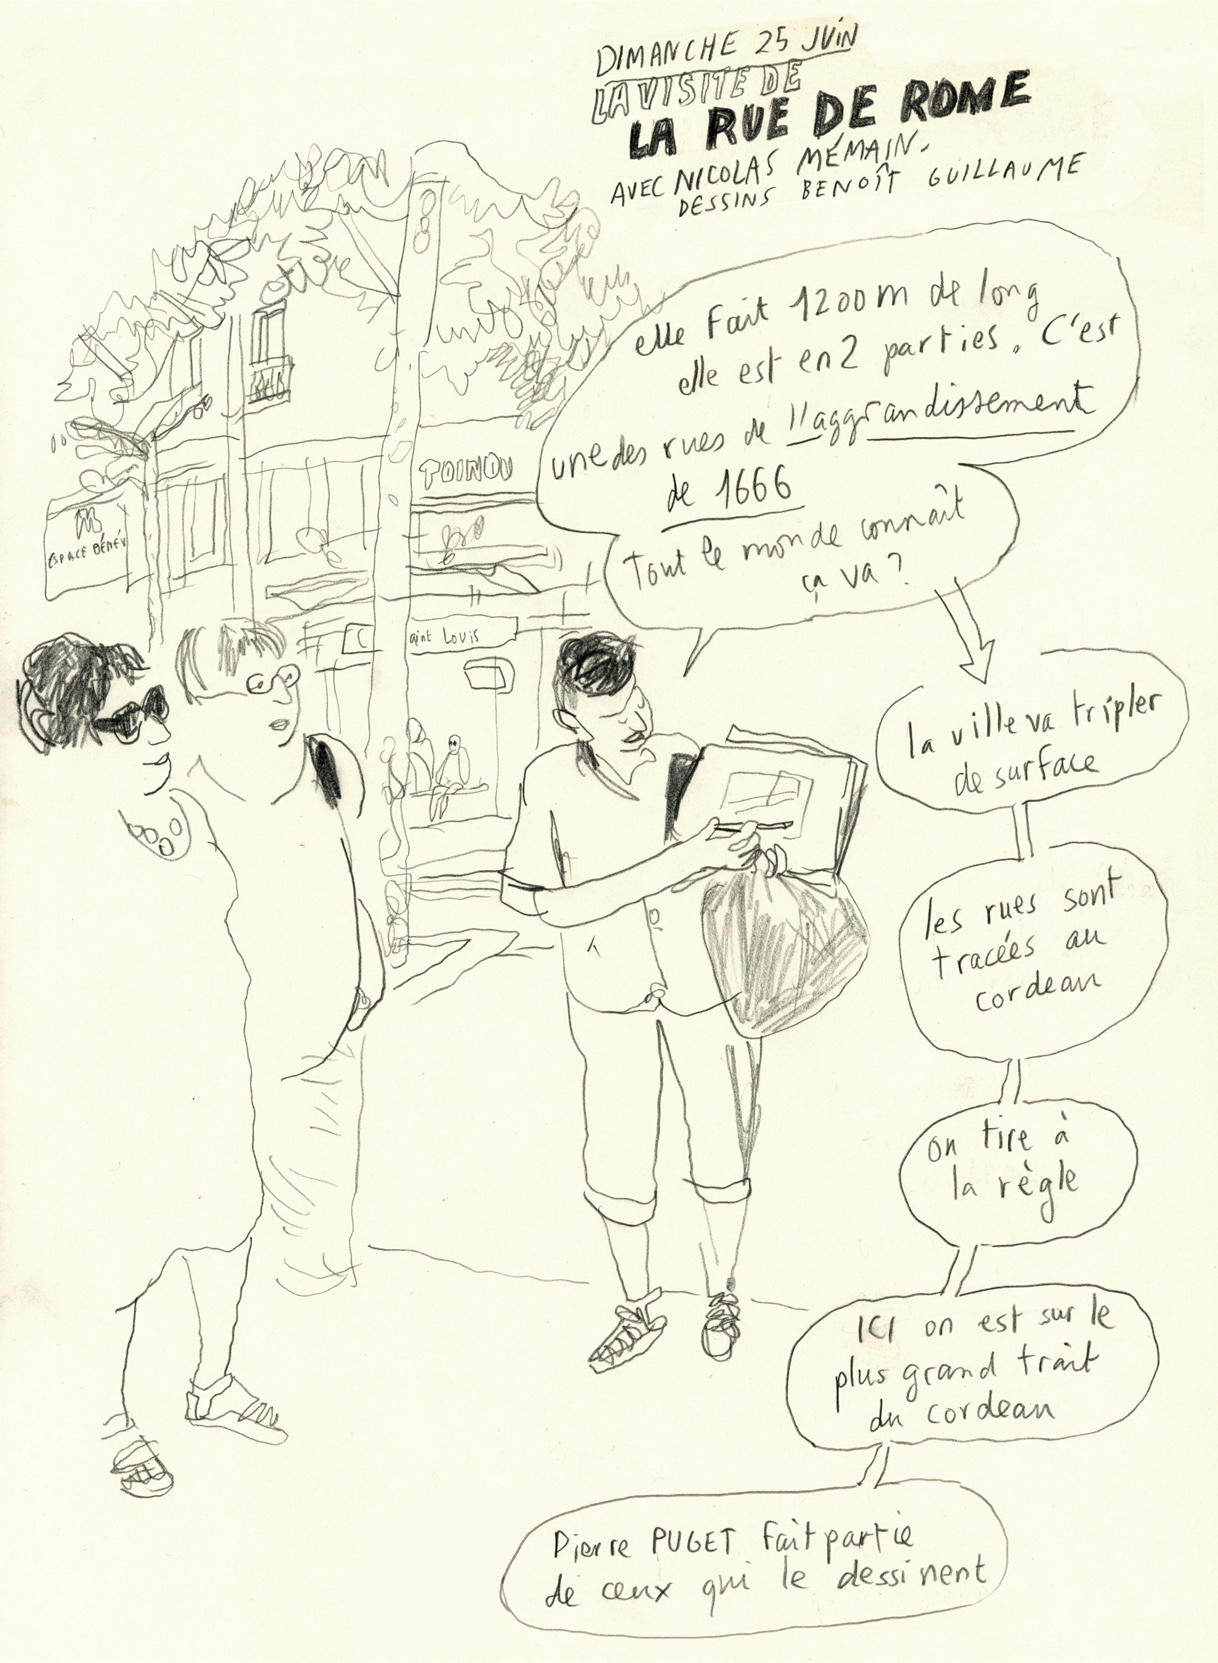 DIMANCHE 25 JUIN
LA VISITE DE
LA RUE DE ROME
AVEC NICOLAS MÉMAIN.
DESSINS BENOÎT GUILLAUME
elle fait 1200m de long
elle est en 2 parties. C'est
une des rues de l'aggrandissement
de 1666
Tout le monde connaît
ça va ?
la ville va tripler
de surface
les rues sont
tracées au
cordeau
on tire à
la règle
ICI on est sur le
plus grand trait
du cordeau
Pierre PUGET fait partie
de ceux qui le dessinent
TOINOU
M
ESPACE BÉNÉV
C
aint Louis